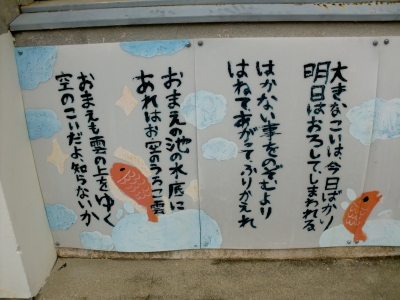 大きなこいは、今日ばかり
明日はおろして、しまわれる。
はかない事をのぞむより
はねてあがって、ふりかえれ
おまえの池の水底に
あれはお空のうろこ雲
おまえも雲の上をゆく
空のこいだよ、知らないか